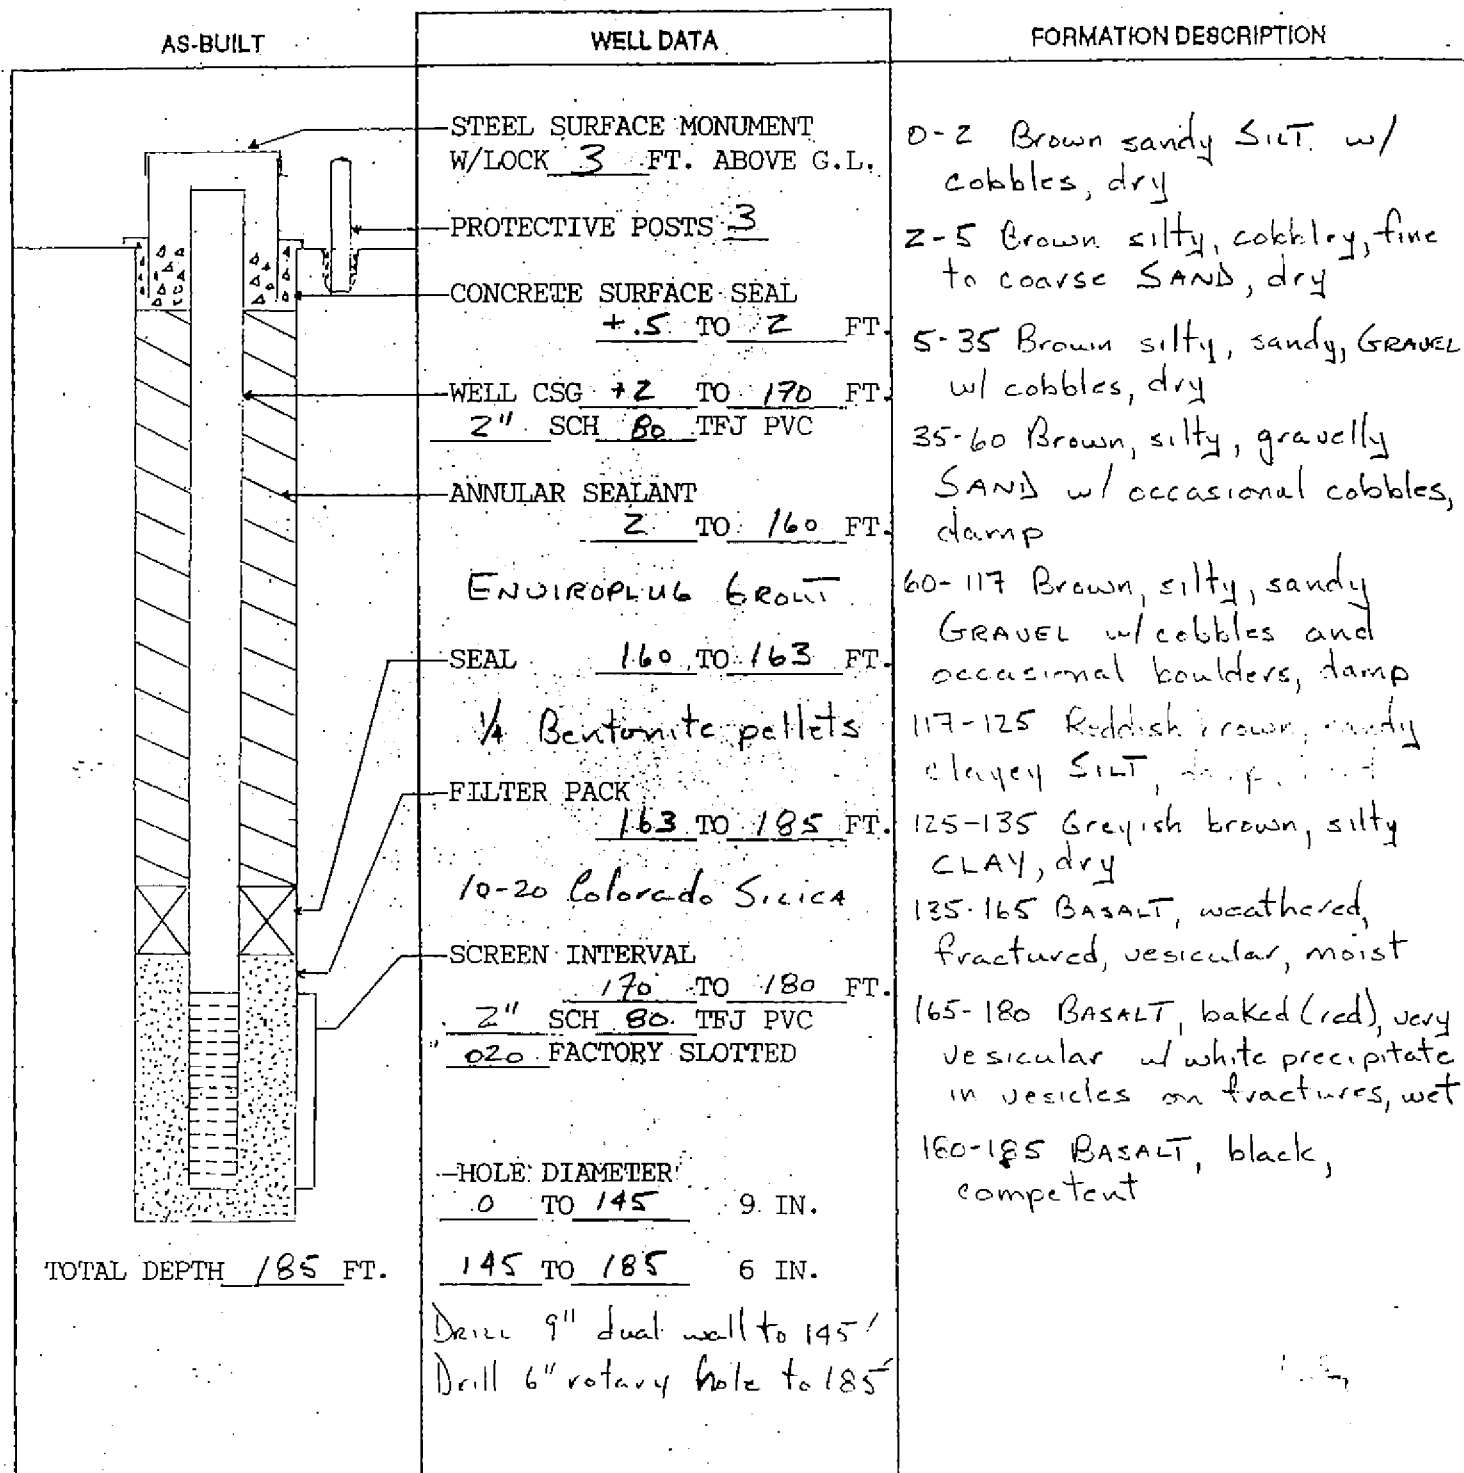 AS-BUILT
WELL DATA
FORMATION DESCRIPTION
STEEL SURFACE MONUMENT
W/LOCK 3 FT. ABOVE G.L.
PROTECTIVE POSTS 3
CONCRETE SURFACE SEAL
+.5 TO 2 FT.
WELL CSG +2 TO 170 FT.
2" SCH 80 TFJ PVC
ANNULAR SEALANT
2 TO 160 FT.
ENVIROPLUG GROUT
SEAL 160 TO 163 FT.
1/4 Bentonite pellets
FILTER PACK
163 TO 185 FT.
10-20 Colorado SILICA
SCREEN INTERVAL
170 TO 180 FT.
2" SCH 80 TFJ PVC
020 FACTORY SLOTTED
HOLE DIAMETER
0 TO 145 9 IN.
145 TO 185 6 IN.
DRILL 9" dual wall to 145'
Drill 6" rotary hole to 185'
0-2 Brown sandy SILT w/
cobbles, dry
2-5 Brown silty, cobbley, fine
to coarse SAND, dry
5-35 Brown silty, sandy, GRAVEL
w/ cobbles, dry
35-60 Brown, silty, gravelly
SAND w/ occasional cobbles,
damp
60-117 Brown, silty, sandy
GRAVEL w/ cobbles and
occasional boulders, damp
117-125 Reddish brown, sandy
clayey SILT,
125-135 Greyish brown, silty
CLAY, dry
135-165 BASALT, weathered,
fractured, vesicular, moist
165-180 BASALT, baked (red), very
vesicular w/ white precipitate
in vesicles on fractures, wet
180-185 BASALT, black,
competent
TOTAL DEPTH 185 FT.